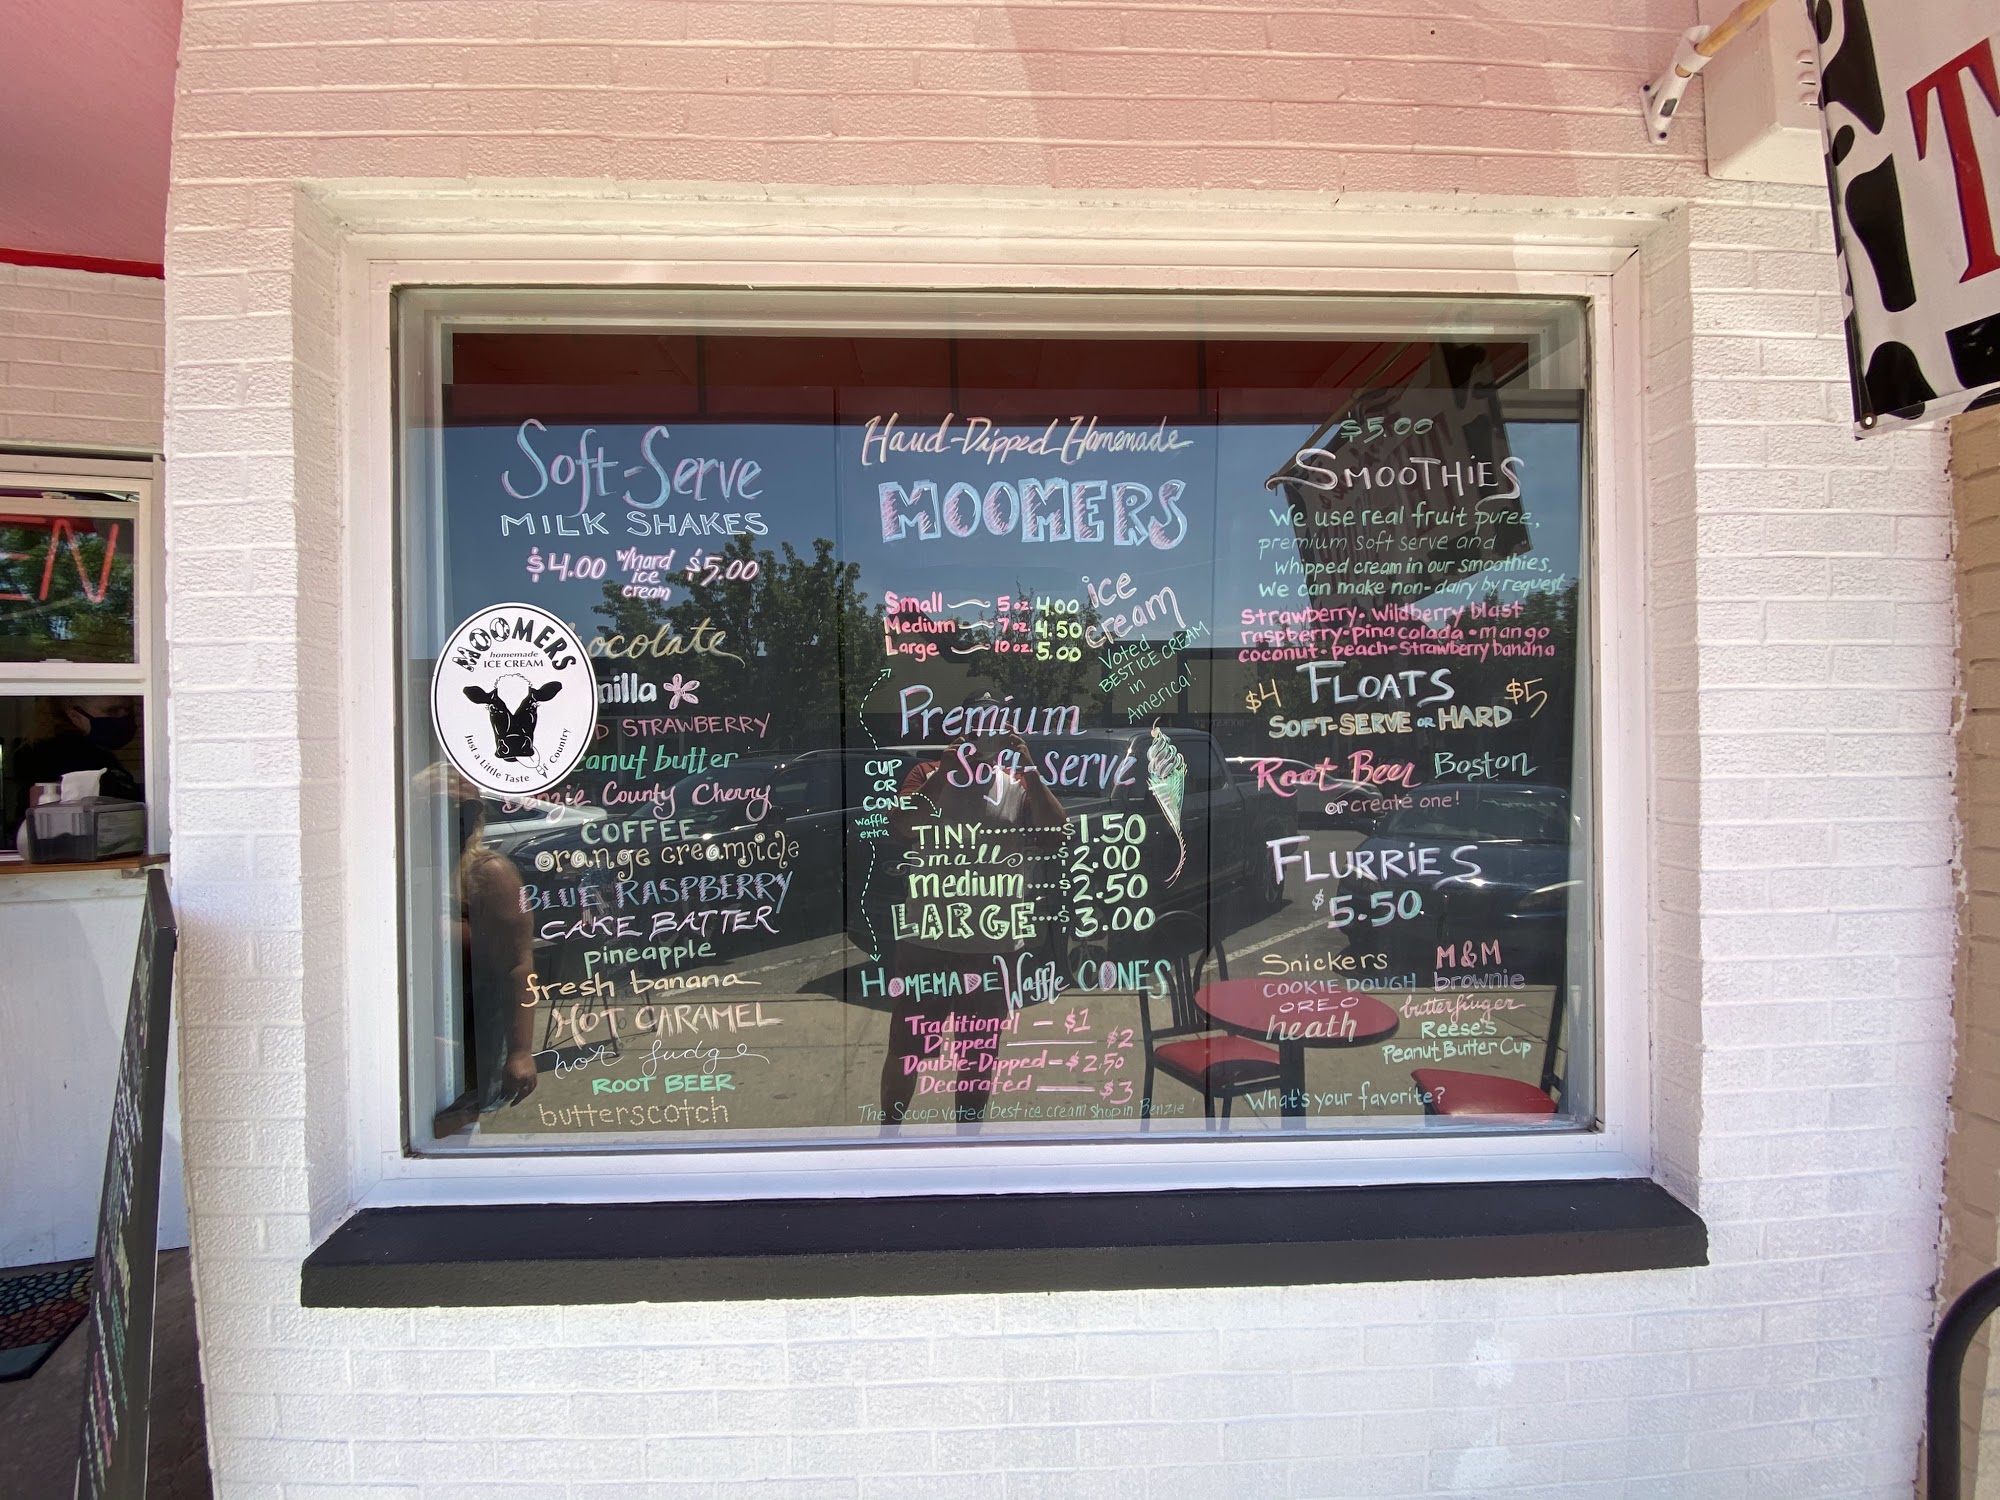 Soft-Serve
MILK SHAKES
$4.00 w/hard ice cream $5.00
MOOMERS
homemade
ICE CREAM
Just a Little Taste of Country
ocolate
nilla
D STRAWBERRY
eanut butter
Benzie County Cherry
COFFEE
orange creamsicle
BLUE RASPBERRY
CAKE BATTER
pineapple
fresh banana
HOT CARAMEL
hot fudge
ROOT BEER
butterscotch
Hand-Dipped Homemade
MOOMERS
ice
cream
Small 5 oz. 4.00
Medium 7 oz. 4.50
Large 10 oz. 5.00
Voted
BEST ICE CREAM
in
America!
Premium
Soft-serve
CUP
OR
CONE
waffle
extra
TINY.......... $1.50
Small.....$2.00
medium....$2.50
LARGE...$3.00
HOMEMADE Waffle CONES
Traditional — $1
Dipped — $2
Double-Dipped - $2.50
Decorated — $3
The Scoop voted best ice cream shop in Benzie
$5.00
SMOOTHiES
We use real fruit puree,
premium soft serve and
whipped cream in our smoothies.
We can make non-dairy by request
Strawberry • Wildberry blast
raspberry • pina colada • mango
coconut • peach • Strawberry banana
$4 FLOATS $5
SOFT-SERVE OR HARD
Root Beer Boston
or create one!
FLURRiES
$5.50
Snickers M&M
COOKIE DOUGH brownie
OREO butterfinger
heath Reese's
Peanut Butter Cup
What's your favorite?
EN
T